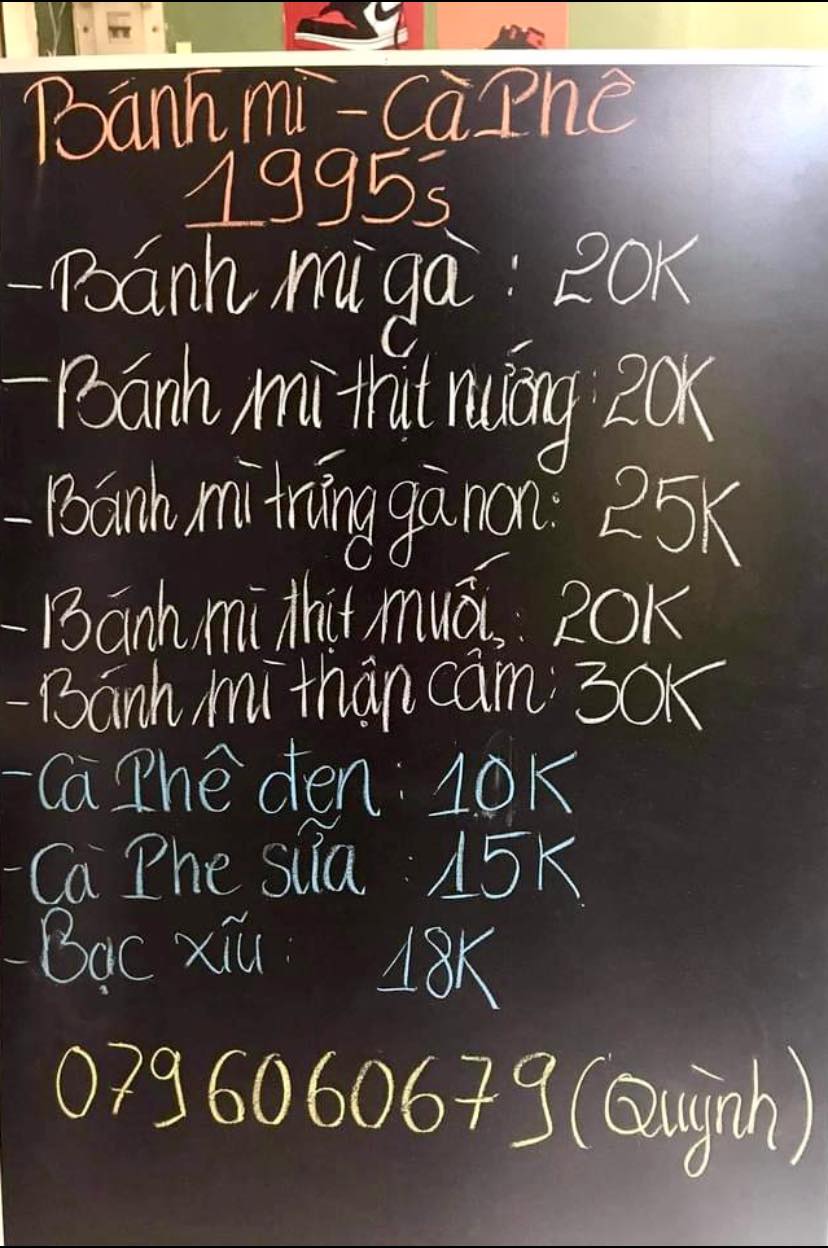 Bánh mì - Cà Phê
1995's
- Bánh mì gà : 20K
- Bánh mì thịt nướng : 20K
- Bánh mì trứng gà non : 25K
- Bánh mì thịt muối : 20K
- Bánh mì thập cẩm : 30K
- Cà Phê đen : 10K
- Cà Phe sữa : 15K
- Bạc xĩu : 18K
0796060679 (Quỳnh)